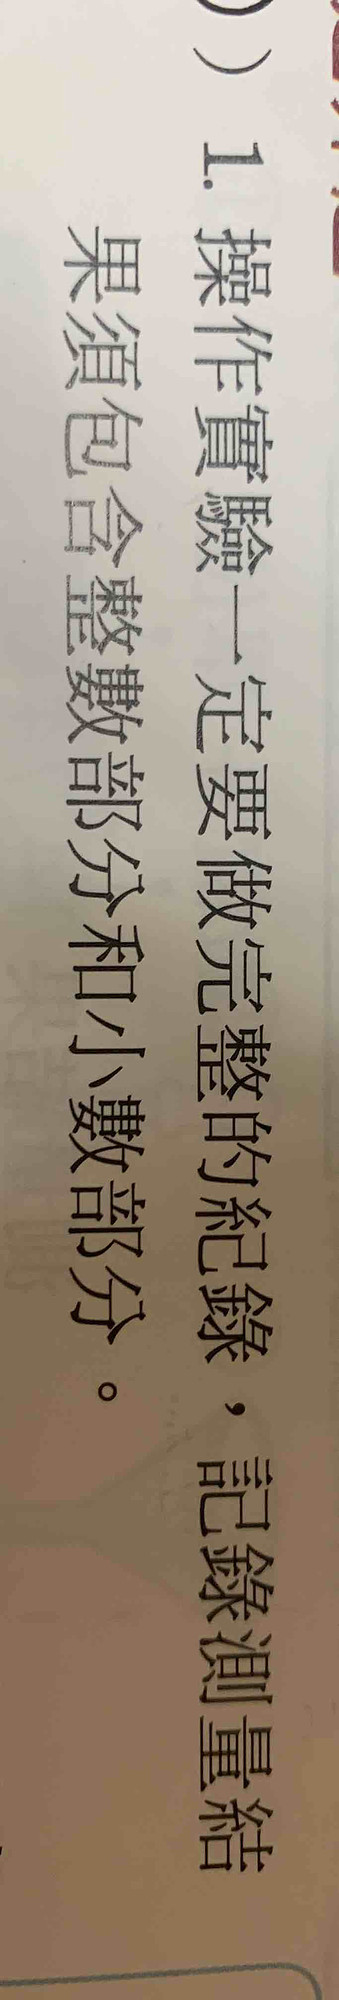 ) 1. 操作實驗一定要做完整的紀錄，記錄測量結
果須包含整數部分和小數部分。